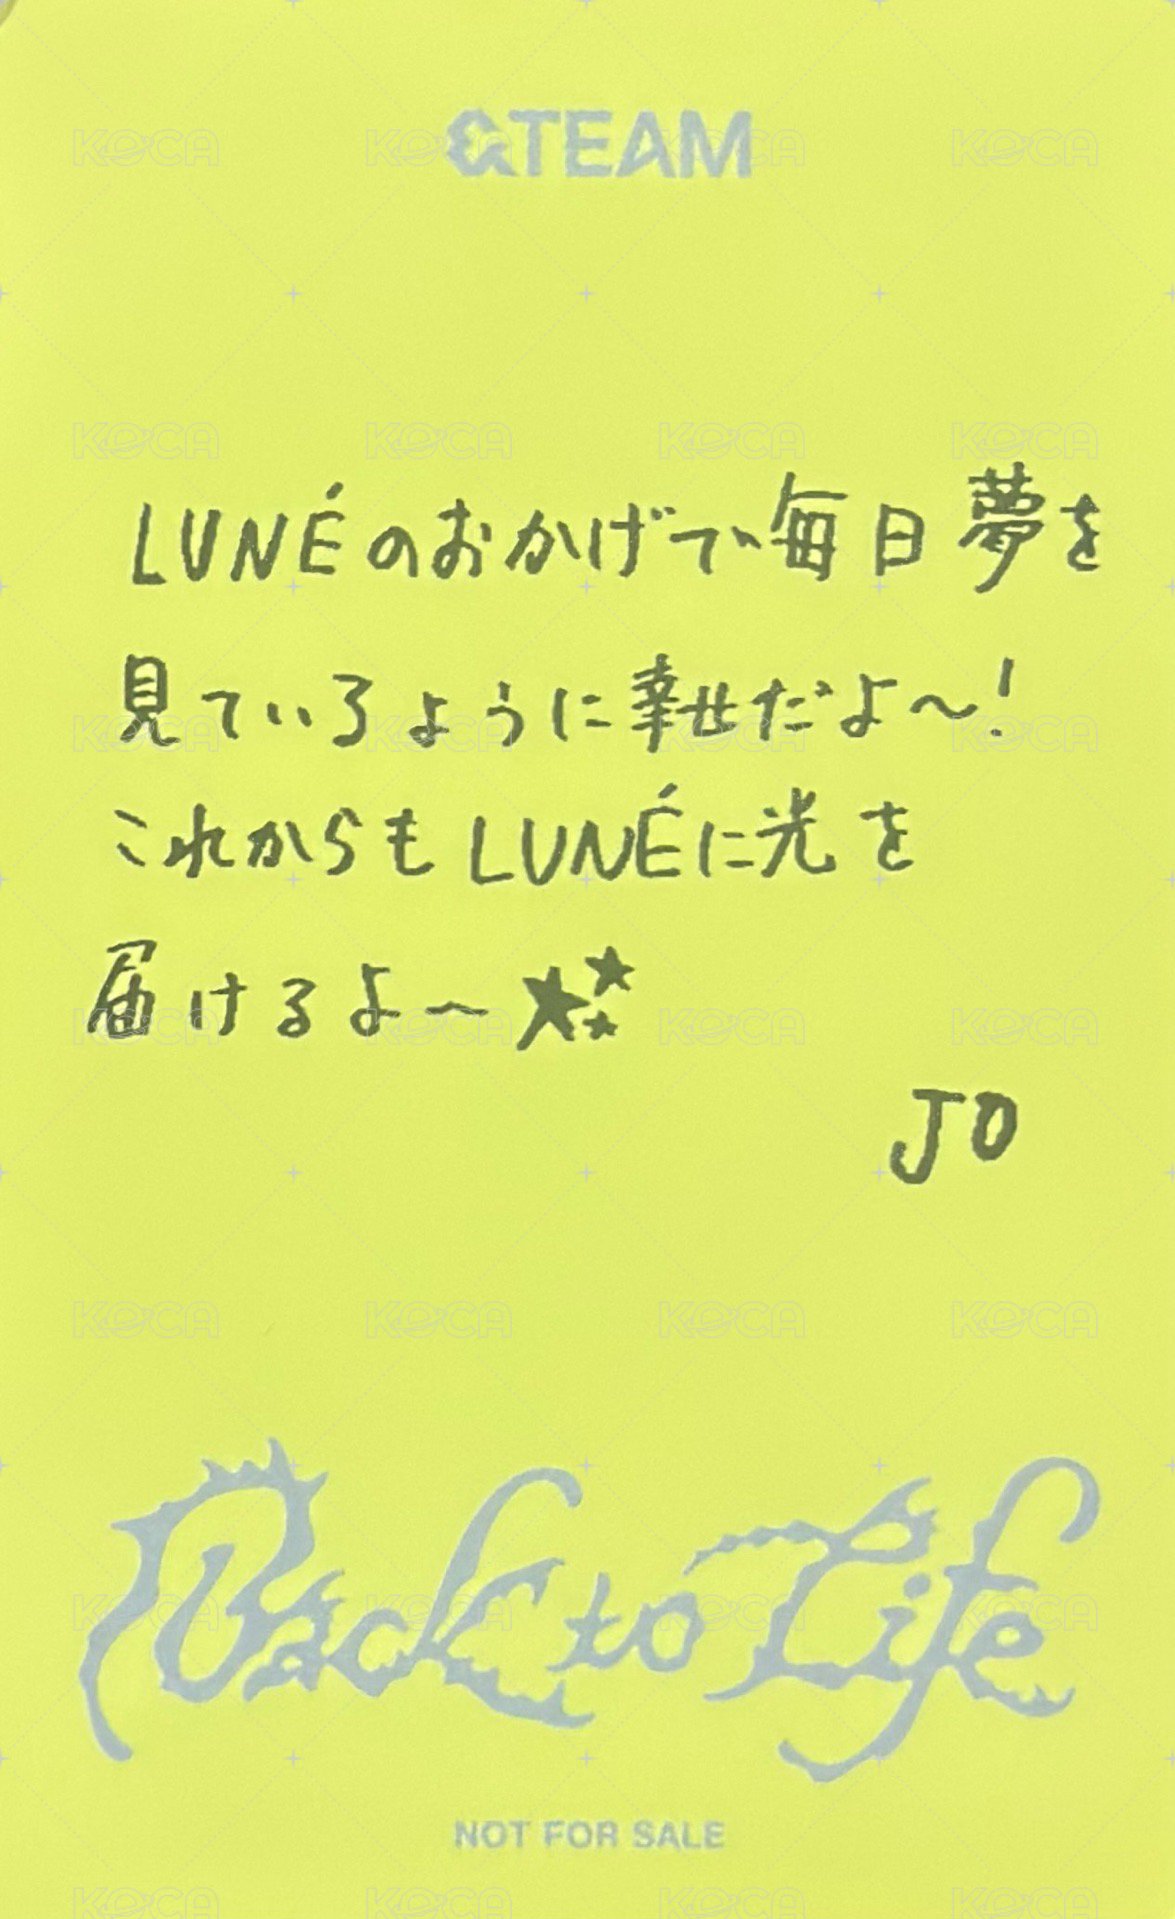 &TEAM
LUNÉのおかげで毎日夢を
見ているように幸せだよ〜!
これからもLUNÉに光を
届けるよ〜★★★
JO
Back to Life
NOT FOR SALE
KOCA